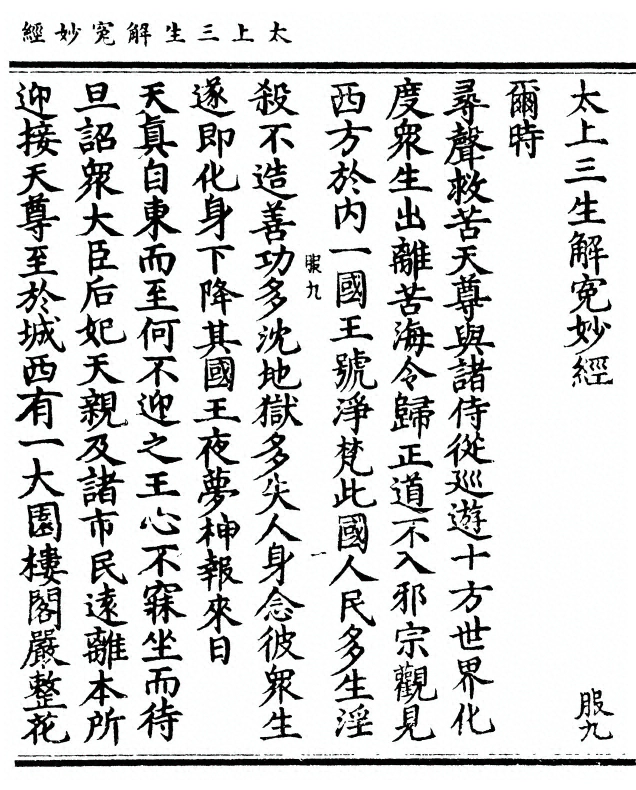 太上三生解冤妙經
太上三生解冤妙經 服九
爾時
尋聲救苦天尊與諸侍從廵遊十方世界化
度衆生出離苦海令歸正道不入邪宗觀見
西方於内一國王號淨梵此國人民多生淫
服九
殺不造善功多沈地獄多失人身念彼衆生
遂即化身下降其國王夜夢神報來日
天眞自東而至何不迎之王心不寐坐而待
旦詔衆大臣后妃天親及諸市民遠離本所
迎接天尊至於城西有一大園樓閣嚴整花